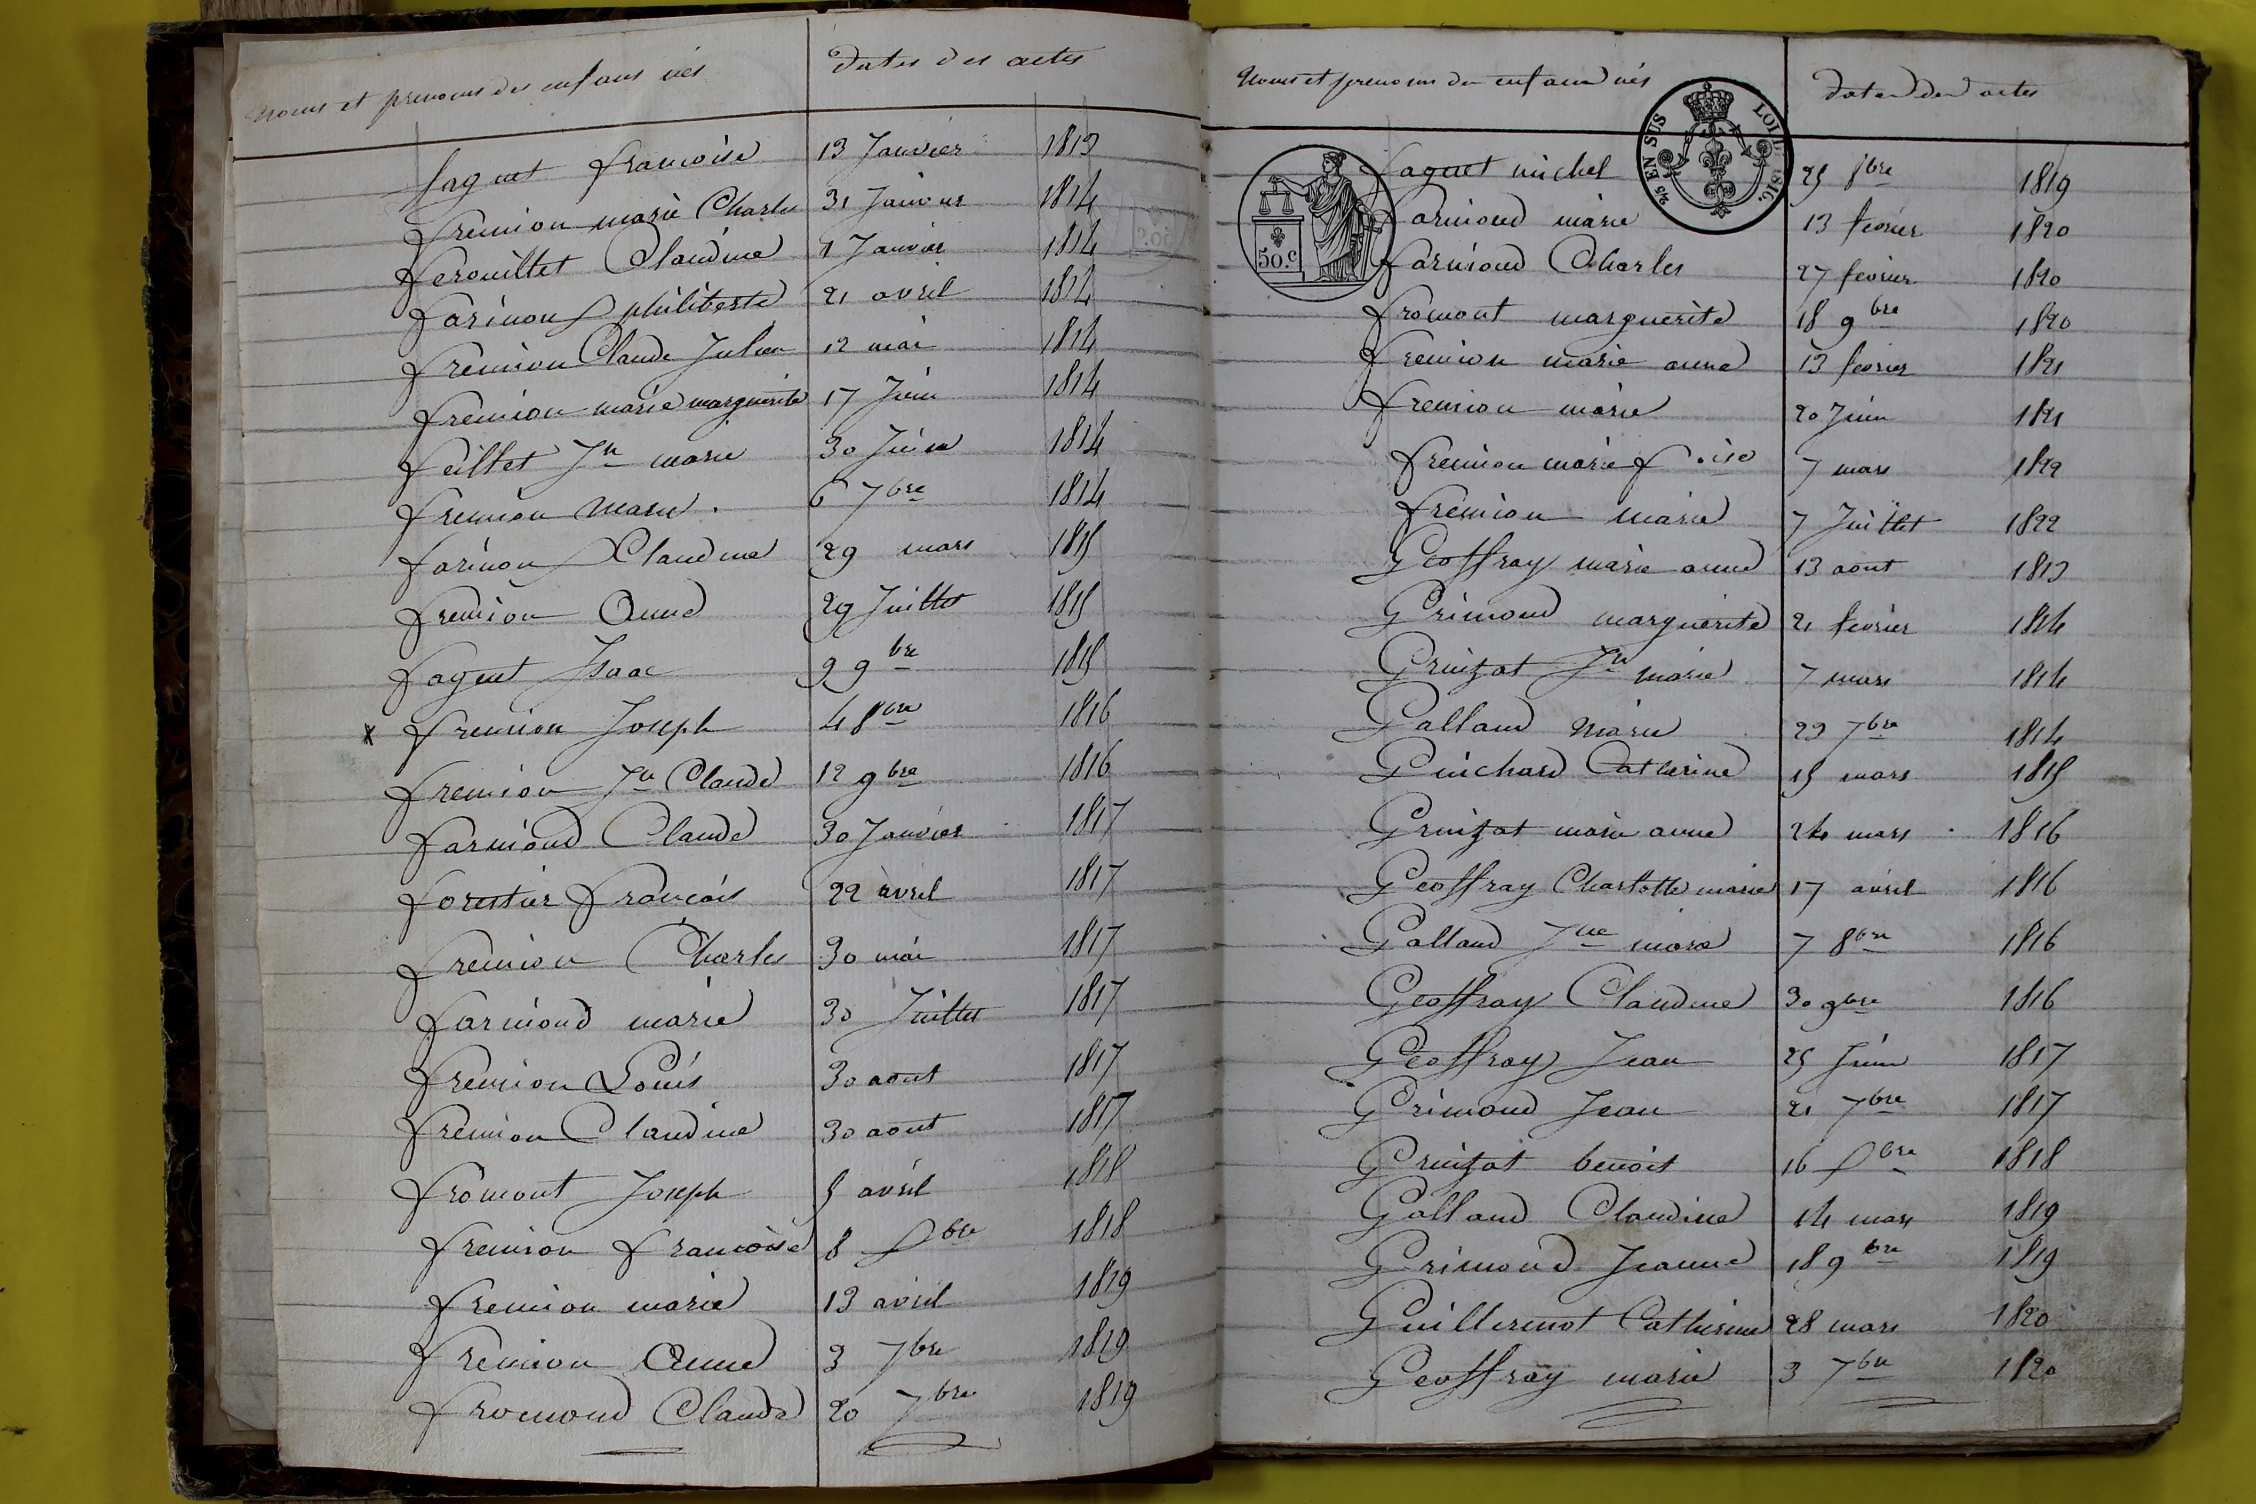 Noms et prenoms des enfans nés dates des actes
faguet francoise 13 Janvier 1813
fremion marie Charles 31 Janvier 1814
ferouillet Claudine 1 Janvier 1814
farinon philiberte 21 avril 1814
fremion Claude Julien 12 mai 1814
fremion marie marguerite 17 Juin 1814
feillet Jn marie 30 Juin 1814
fremion marie. 6 7bre 1814
farinon Claudine 29 mars 1815
fremion Anne 29 Juillet 1815
faguet Isaac 9 9bre 1815
x fremion Joseph 4 8bre 1816
fremion Jn Claude 12 9bre 1816
farmond Claude 30 Janvier 1817
forestier francois 22 avril 1817
fremion Charles 30 mai 1817
farmond marie 30 Juillet 1817
fremion Louis 30 aout 1817
fremion Claudine 30 aout 1817
fromont Joseph 5 avril 1818
fremion francoise 8 bre 1818
fremion marie 13 avril 1819
fremion Anne 3 7bre 1819
fromond Claude 20 7bre 1819
Noms et prenoms des enfans nés dates des actes
25 EN SUS LOI 1816.
50.c
faguet michel 25 8bre 1819
farmond marie 13 fevrier 1820
farmond Charles 27 fevrier 1820
fromont marguerite 18 9bre 1820
fremion marie anne 13 fevrier 1821
fremion marie 20 Juin 1821
fremion marie f.ise 7 mars 1822
fremion marie 7 Juillet 1822
Geoffray marie anne 13 aout 1813
Grimond marguerite 21 fevrier 1814
Gruizat Jn marie 7 mars 1814
Galland Marie 23 7bre 1814
Guichard Catherine 15 mars 1815
Gruizat marie anne 24 mars 1816
Geoffray Charlotte marie 17 avril 1816
Galland Jne marie 7 8bre 1816
Geoffray Claudine 30 9bre 1816
Geoffray Jean 25 Juin 1817
Grimond Jean 21 7bre 1817
Gruizat benoit 16 bre 1818
Galland Claudine 14 mars 1819
Grimond Jeanne 18 9bre 1819
Guillermot Catherine 28 mars 1820
Geoffray marie 3 7bre 1820